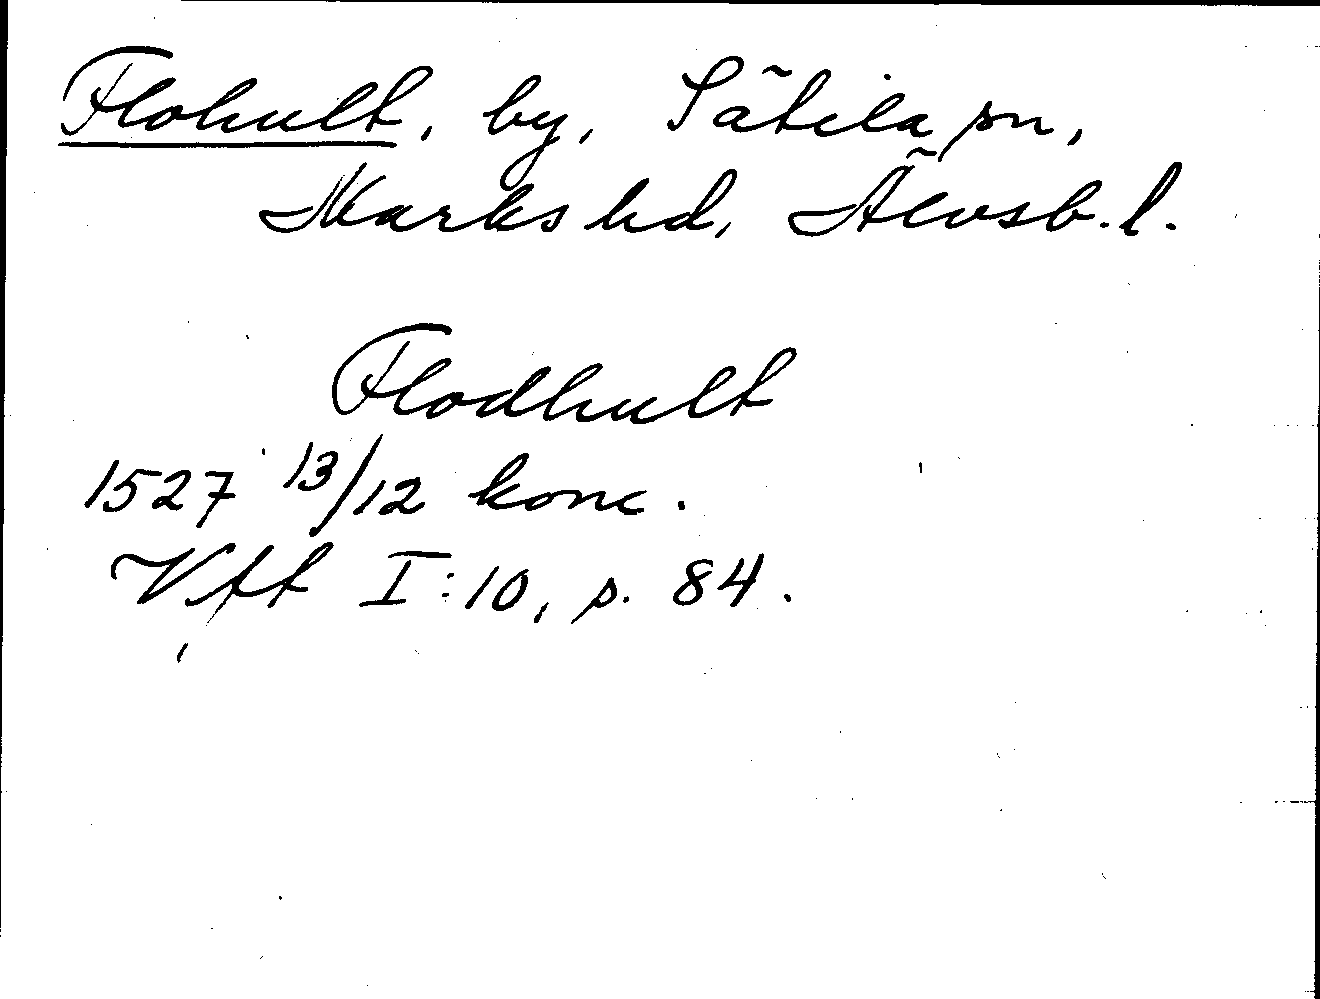 Flohult, by, Sätila sn,
Marks hd, Älvsb. l.
Flodhult
1527 13/12 konc.
Vft I:10, s. 84.